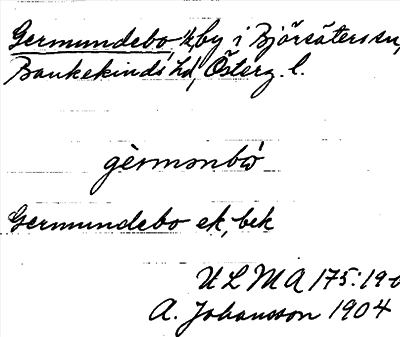 Germundebo, kby i Björsäters sn,
Bankekinds hd, Österg. l.
gèrmɔnbò
Germundebo ek, bek
ULMA 175:19
A. Johansson 1904